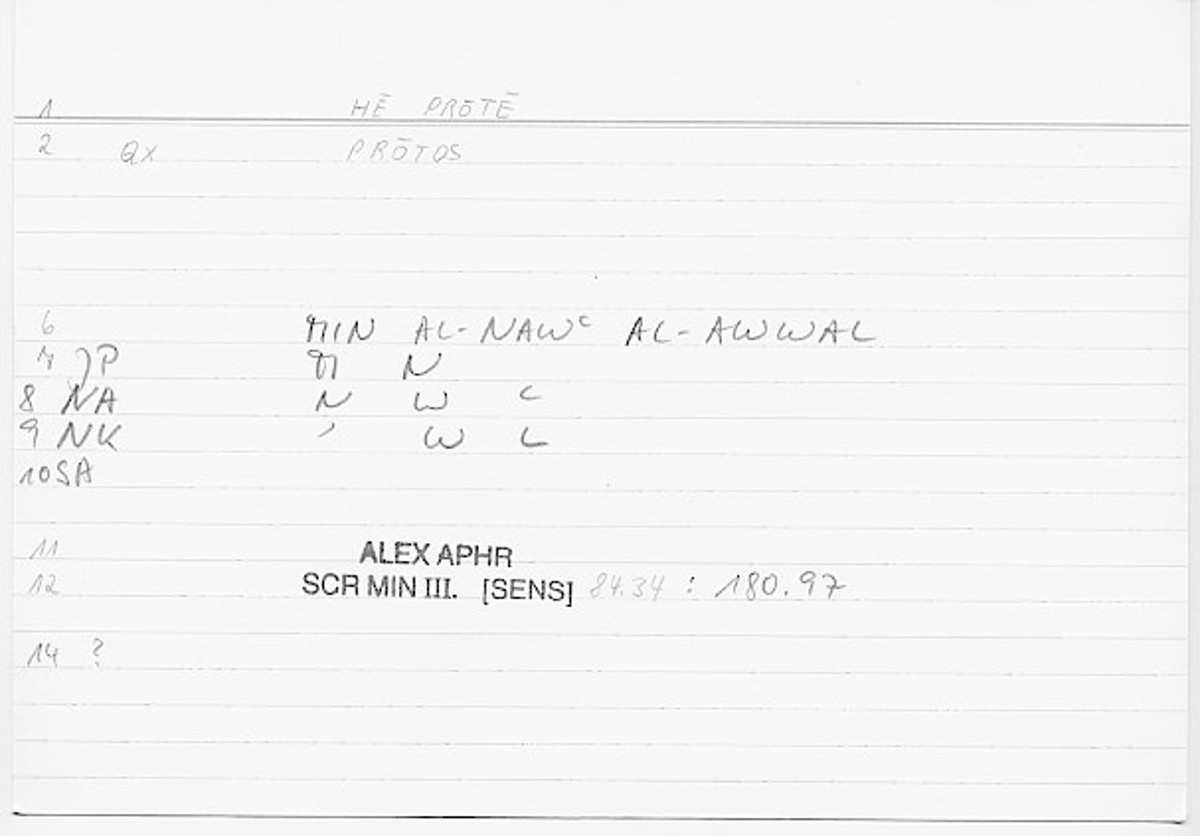 1 HĒ PRŌTĒ
2 QX PRŌTOS
6 MIN AL-NAWᶜ AL-AWWAL
7 JP M N
8 NA N W ᶜ
9 NK ʾ W L
10 SA
11 ALEX APHR
12 SCR MIN III. [SENS] 84.34 : 180.97
14 ?